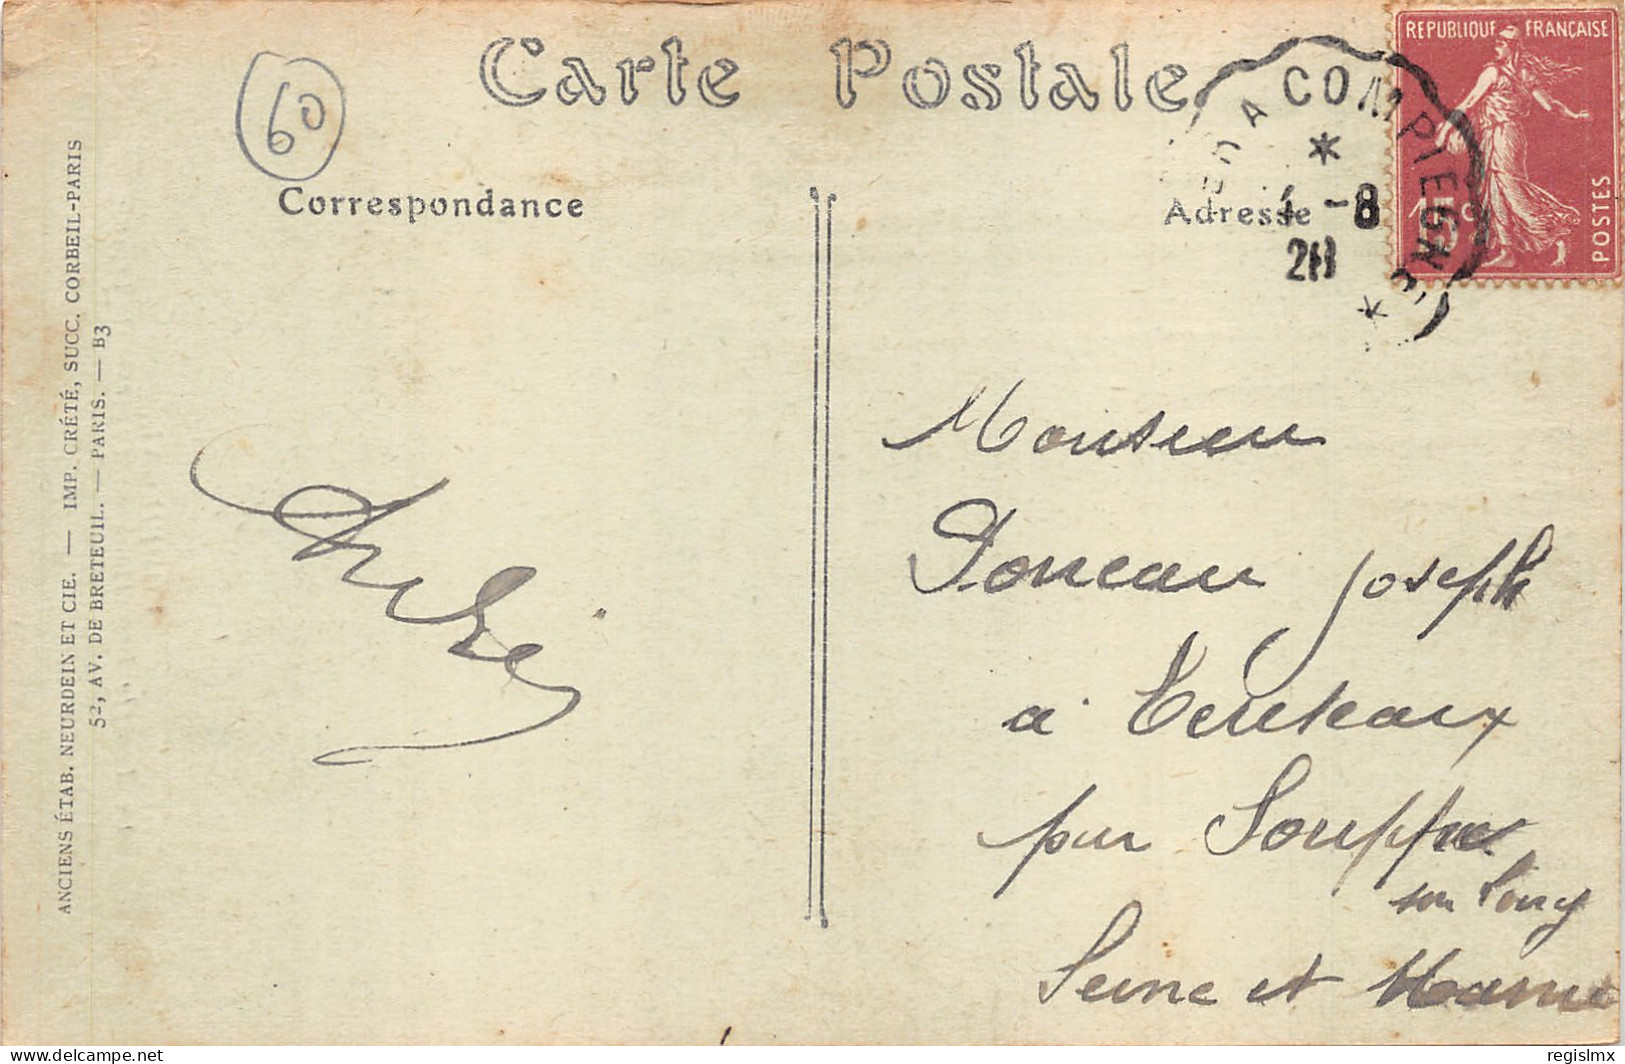 Carte Postale
60
Correspondance
Adresse
REPUBLIQUE FRANÇAISE
15c
POSTES
COMPIEGNE
4 -8
ANCIENS ÉTAB. NEURDEIN ET CIE. — IMP. CRÉTÉ, SUCC. CORBEIL-PARIS
52, AV. DE BRETEUIL. — PARIS. — B3
Monsieur
Joseph
à
par Souppes
sur Loing
Seine et Marne
delcampe.net
regislmx